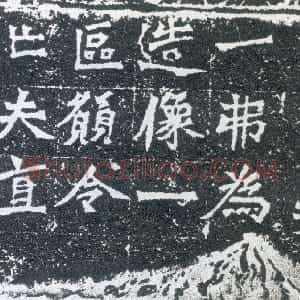 一弗為
造像一
區願令
亡夫直